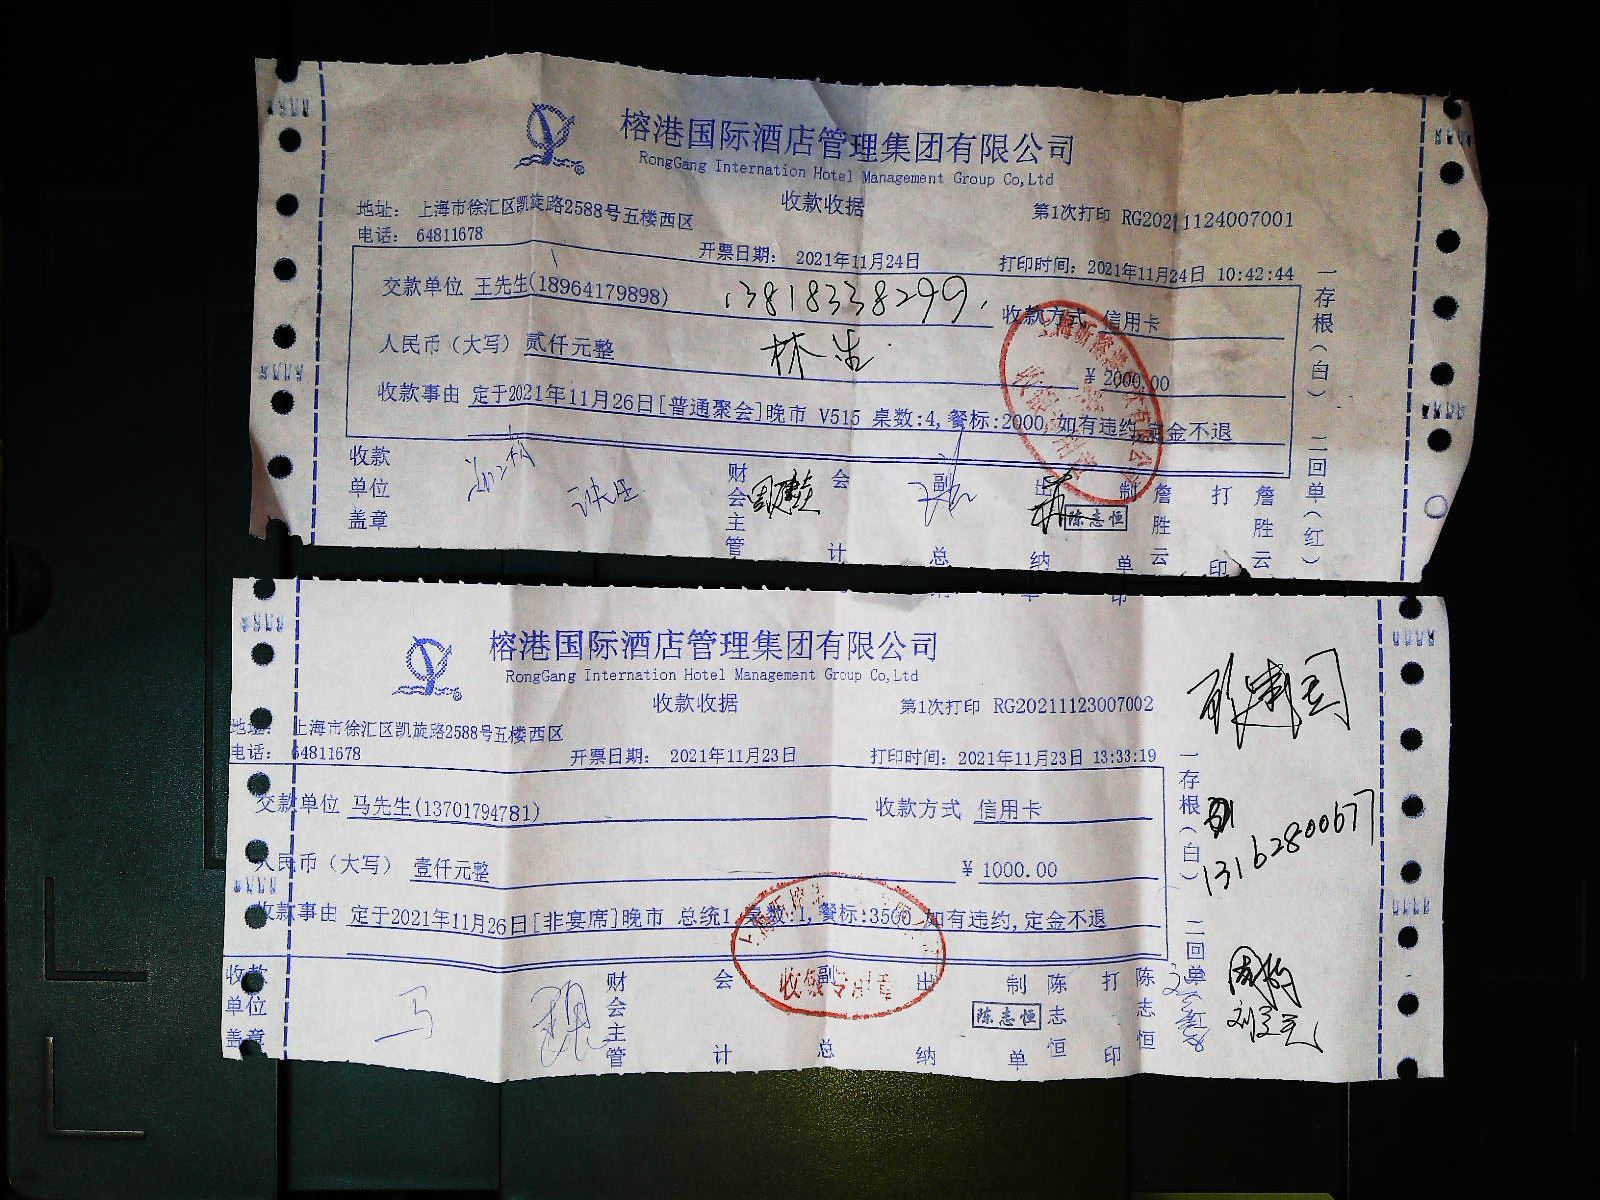 榕港国际酒店管理集团有限公司
RongGang Internation Hotel Management Group Co,Ltd
收款收据
地址： 上海市徐汇区凯旋路2588号五楼西区
第1次打印 RG20211124007001
电话： 64811678
开票日期： 2021年11月24日
打印时间：2021年11月24日 10:42:44
交款单位 王先生(18964179898) 13818338299.
收款方式 信用卡
人民币（大写）贰仟元整
林生
¥ 2000.00
收款事由 定于2021年11月26日[普通聚会]晚市 V515 桌数:4,餐标:2000,如有违约,定金不退
收款单位盖章
财会主管
会计
副总
出纳
陈志恒
制单
詹胜云
打印
詹胜云
一存根（白） 二回单（红）
榕港国际酒店管理集团有限公司
RongGang Internation Hotel Management Group Co,Ltd
收款收据
第1次打印 RG20211123007002
地址： 上海市徐汇区凯旋路2588号五楼西区
电话： 64811678
开票日期： 2021年11月23日
打印时间：2021年11月23日 13:33:19
交款单位 马先生(13701794781)
收款方式 信用卡
人民币（大写） 壹仟元整
¥ 1000.00
收款事由 定于2021年11月26日[非宴席]晚市 总统1,桌数:1,餐标:3500,如有违约,定金不退
收银专用章
收款单位盖章
马
财会主管
会计
副总
出纳
陈志恒
制单
陈志恒
打印
陈志恒
一存根（白） 二回单
13162800677